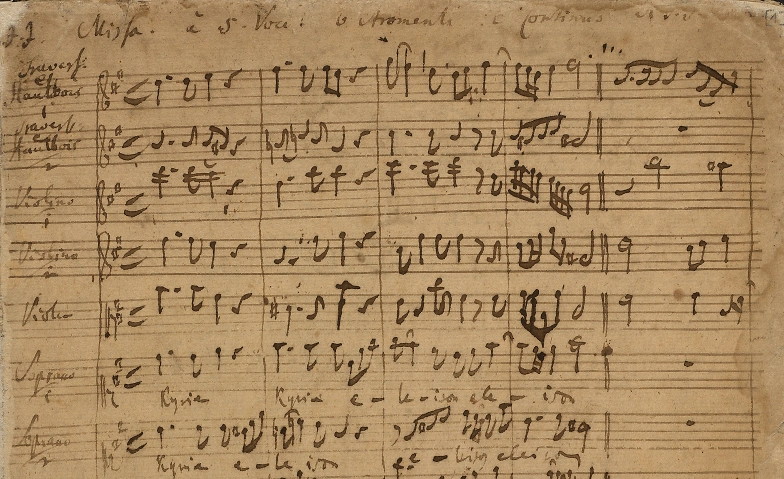 J.J. Missa. à 5. Voci. 6 Stromenti. e Continuo
Travers:
et
Hautbois
1
Travers:
et
Hautbois
2
Violino
1
Violino
2
Viola
Soprano
1
Kyrie Kyrie e - le - ison ele - ison
Soprano
2
Kyrie e - le - ison e - leison eleison